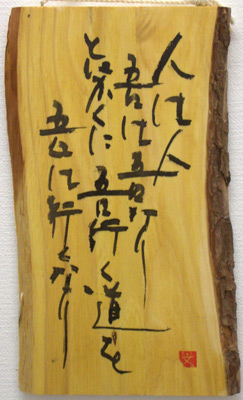 人は人
吾は吾なり
とにかくに吾行く道を
吾は行くなり
文